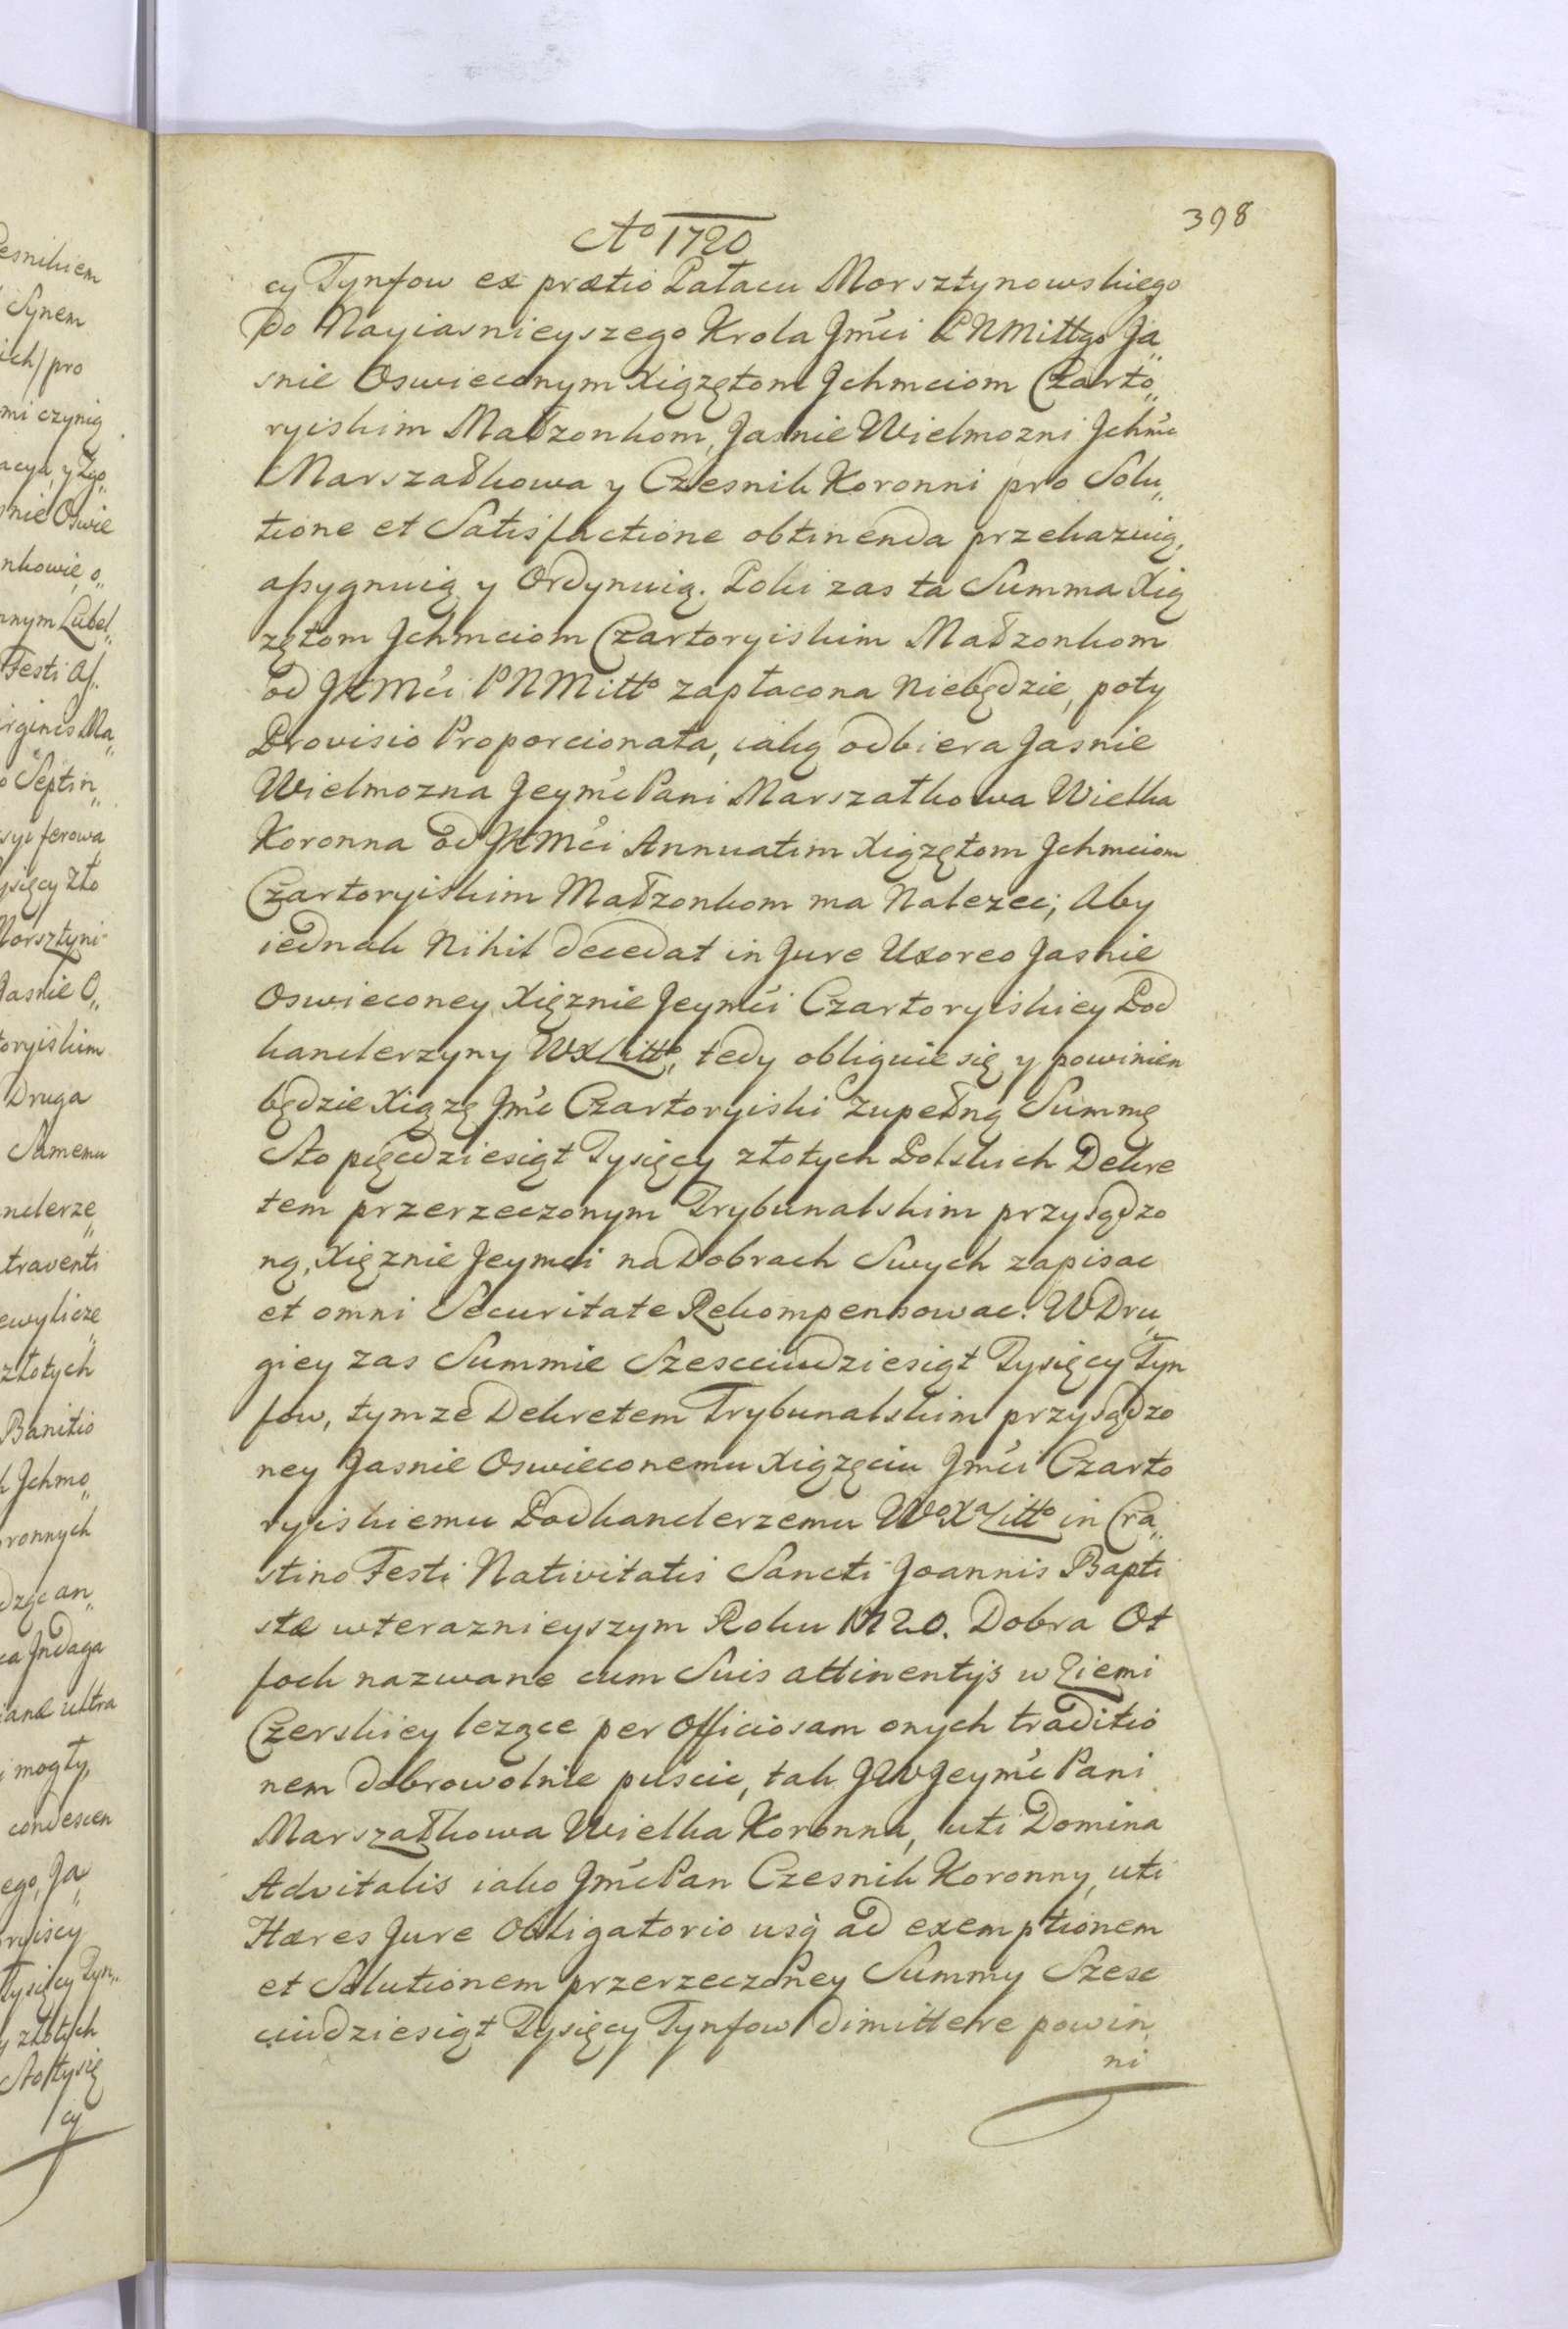 398
Ao 1720
cy Tynfow ex prætio Pałacu Morsztynowskiego
Do Nayiasnieyszego Krola Jm̃ci PNMiłłgo Ja„
snie Oswieconym Xiązętom Jchmciom Czarto„
ryiskim Małzonkom, Jasnie Wielmozni Jchm̃c
Marszałkowa y Czesnik Koronni pro Solu„
tione et Satisfactione obtinenda przekazuią,
assygnuią y Ordynuią. Poki zas ta Summa Xią
zętom Jchmciom Czartoryiskim Małzonkom
od JKMci PNMiłło zapłacona Niebędzie, poty
Provisio Proporcionata, iaką odbiera Jasnie
Wielmozna Jeym̃c Pani Marszałkowa Wielka
Koronna od JKMci Annuatim Xiązętom Jchmciom
Czartoryiskim Małzonkom ma Nalezec; Aby
iednak Nihil decedat in Jure Uxoreo Jasnie
Oswieconey Xięznie Jeym̃ci Czartoryiskiey Pod
kanclerzyny WXLitto, tedy obliguie się y powinien
będzie Xiązę Jm̃c Czartoryiski zupełną Summę
Sto pięcdziesiąt Tysięcy złotych Polskich Dekre
tem przerzeczonym Trybunalskim przysądzo
ną, Xięznie Jeymci na Dobrach Swych zapisac
et omni Securitate Rekompensowac. W Dru„
giey zas Summie Szescciudziesiąt Tysięcy Tyn
fow, tymze Dekretem Trybunalskim przysądzo
ney Jasnie Oswieconemu Xiązęciu Jm̃ci Czarto
ryiskiemu Podkanclerzemu WoXaLitto in Cra„
stino Festi Nativitatis Sancti Joannis Bapti
stæ wteraznieyszym Roku 1720. Dobra Ot
fock nazwane cum Suis attinentijs w Ziemi
Czerskiey lezące per Officiosam onych traditio
nem dobrowolnie puscic, tak JW Jeym̃c Pani
Marszałkowa Wielka Koronna, uti Domina
Advitalis iako Jm̃c Pan Czesnik Koronny, uti
Hæres Jure Obligatorio usq̀ ad exemptionem
et Solutionem przerzeczoney Summy Szesc
ciudziesiąt Tysięcy Tynfow dimittere powin„
ni